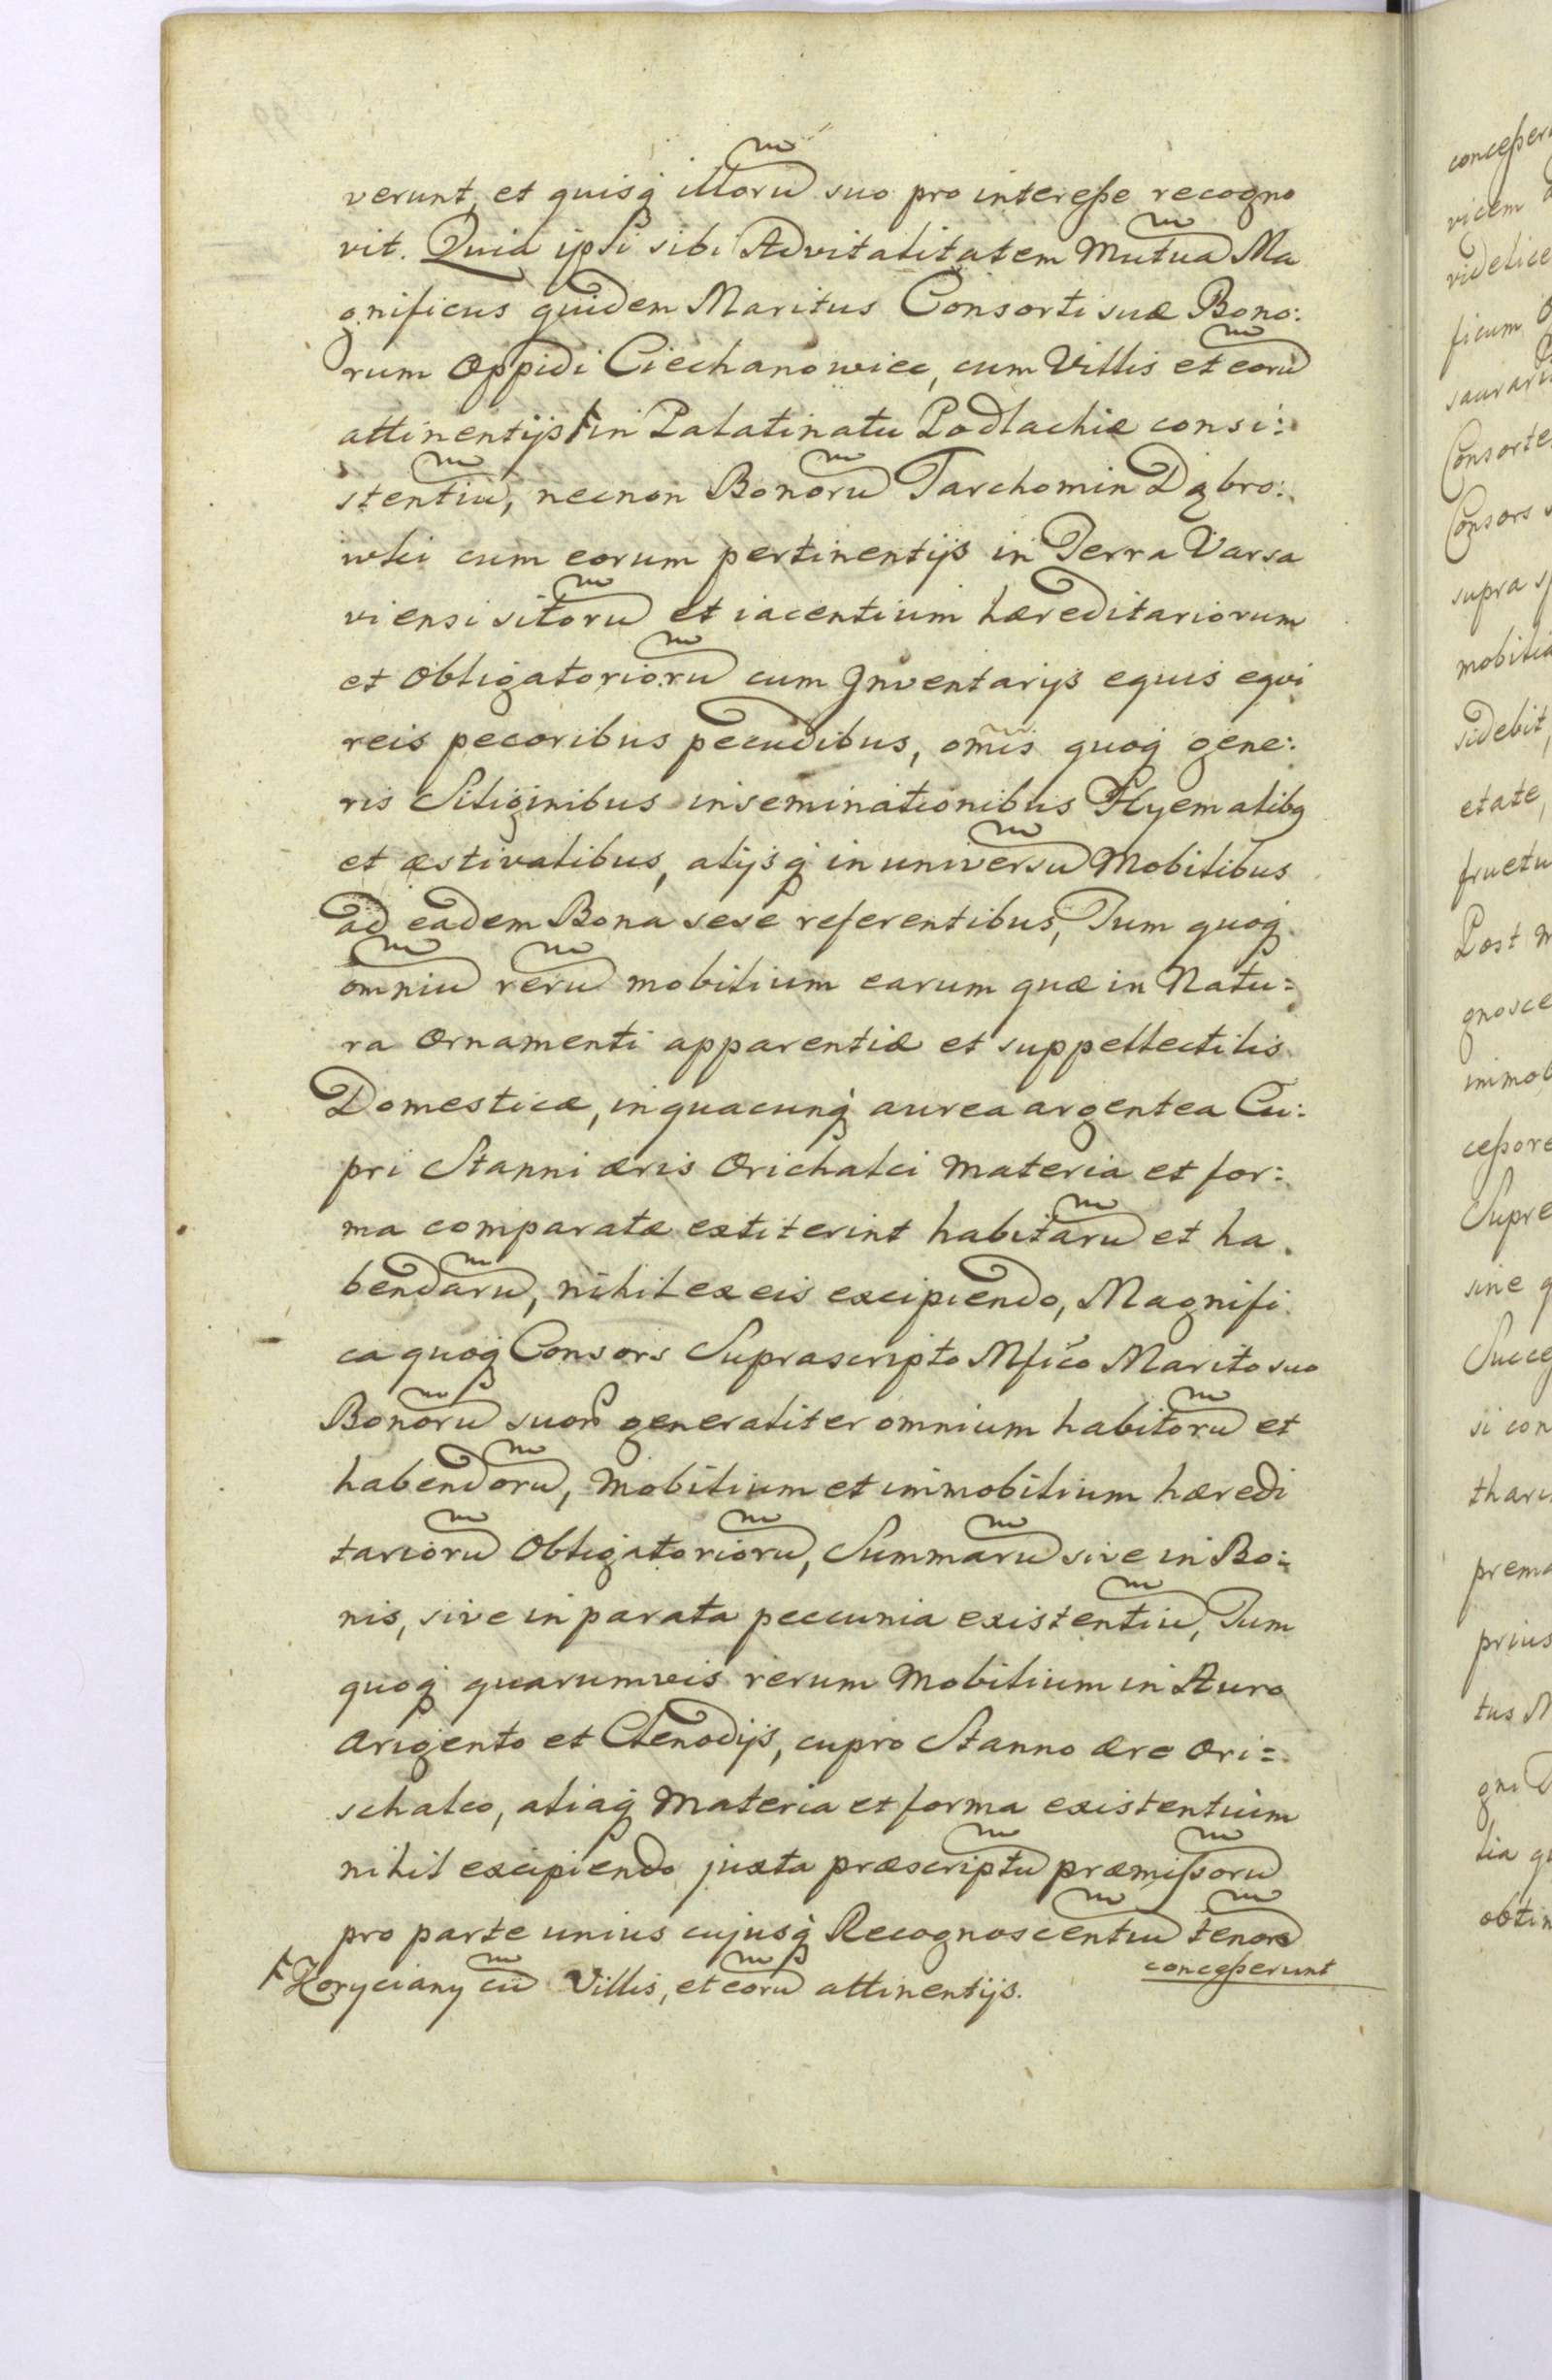 verunt, et quisq̷ illorum suo pro interesse recogno
vit. Quia ipsi sibi Advitalitatem Mutuam Ma
gnificus quidem Maritus Consorti suæ Bono:
rum Oppidi Ciechanowiec, cum Villis et eorum
attinentijs ⊦ in Palatinatu Podlachiæ consi:
stentium, necnon Bonorum Tarchomin Dąbro:
wki cum eorum pertinentijs in Terra Varsa
viensi sitorum et iacentium hæreditariorum
et Obligatoriorum cum Inventarijs equis equi
reis pecoribus pecudibus, omĩs quoq̷ gene:
ris Siliginibus inseminationibus Hyemalibq
et æstivalibus, alijsq̷ in universum Mobilibus
ad eadem Bona sese referentibus, Tum quoq̷
omnium rerum mobilium earum quæ in Natu:
ra Ornamenti apparentiæ et suppellectilis
Domesticæ, in quacunq̷ aurea argentea Cu:
pri Stanni æris Orichalci Materia et for:
ma comparatæ extiterint habitarum et ha
bendarum, nihil ex eis excipiendo, Magnifi
ca quoq̷ Consors Suprascripto Mfico Marito suo
Bonorum suor generaliter omnium habitorum et
habendorum, Mobilium et immobilium hæredi
tariorum Obligatoriorum, Summarum sive in Bo:
nis, sive in parata peccunia existentium, Tum
quoq̷ quarumvis rerum Mobilium in Auro
Argento et Clenodijs, cupro Stanno ære Ori:
schalco, aliaq̷ Materia et forma existentium
nihil excipiendo juxta præscriptum præmissorum
pro parte unius cujusq̷ Recognoscentium tenorem
concesserunt
⊦ Koryciany cum Villis, et eorum attinentijs.
concesser
vicem
videlice
ficum
Consorte
Consors
supra
mobilia
sidebit,
etate,
fructu
Post
gnosce
immob
cessore
Supre
sine
Succe
si con
prema
prius
tus
obtin